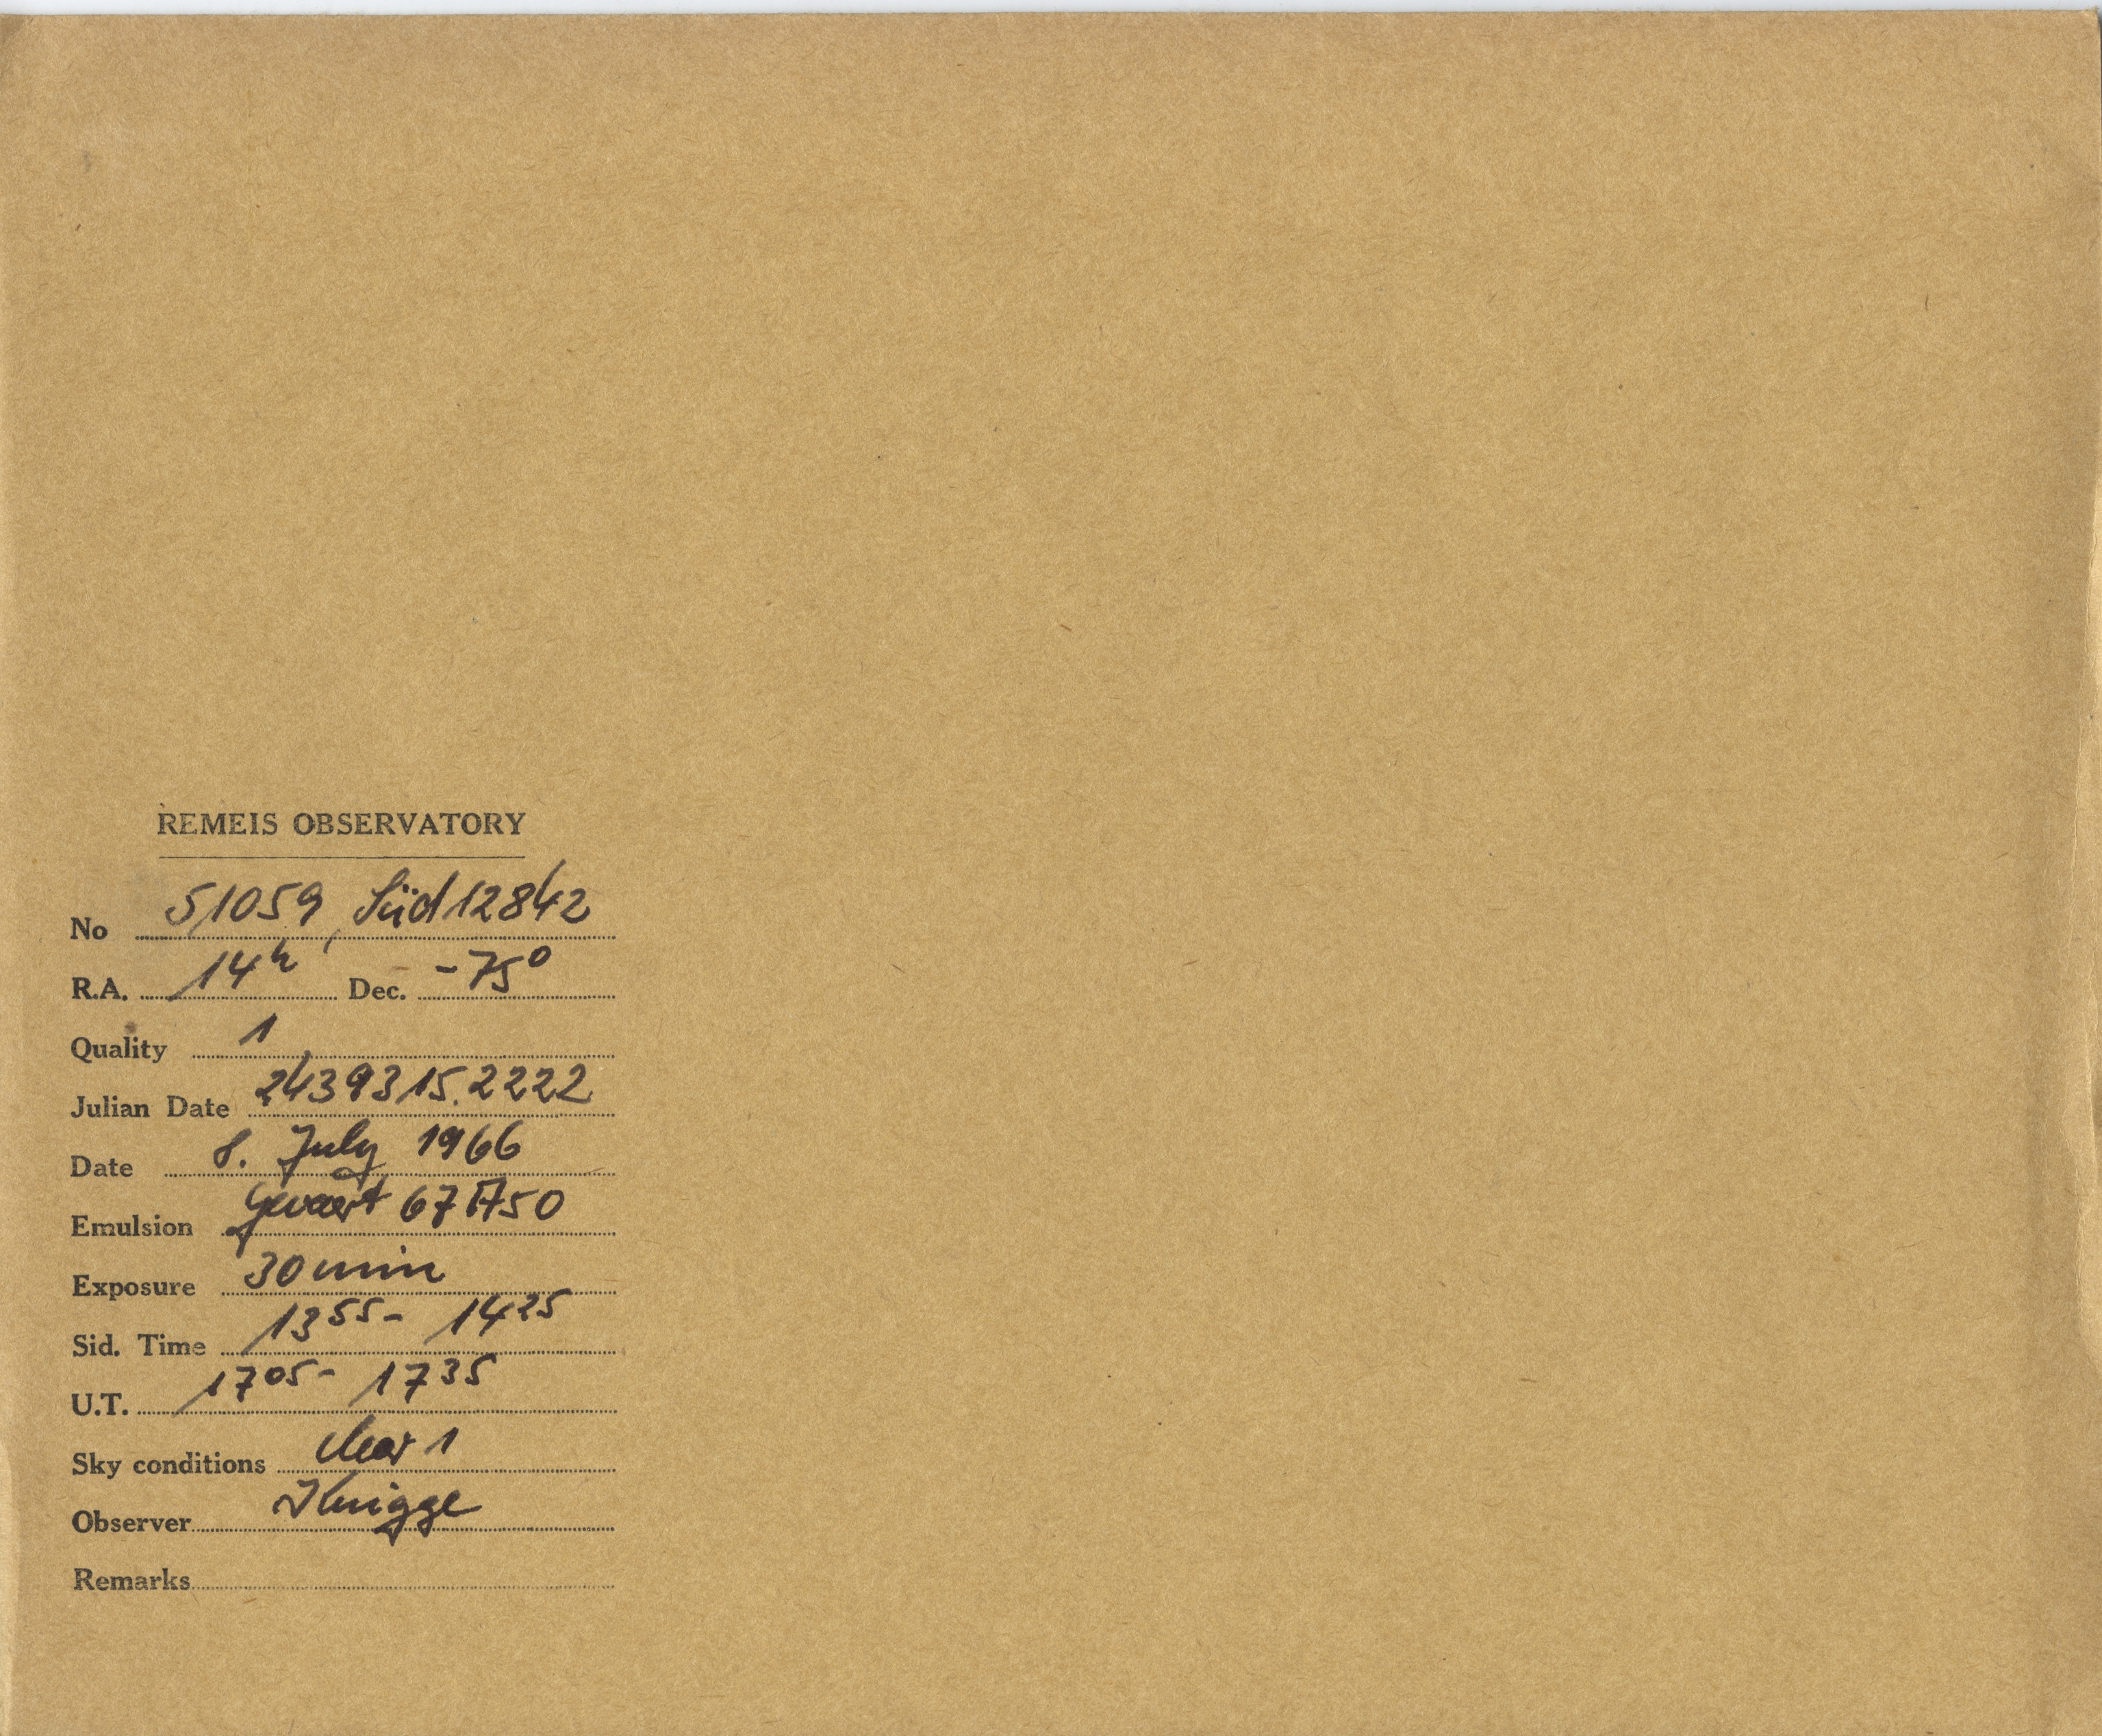 REMEIS OBSERVATORY
No 51059, Süd 12842
R.A. 14h Dec. -75°
Quality 1
Julian Date 2439315.2222
Date 8. July 1966
Emulsion Gevaert 67A50
Exposure 30 min
Sid. Time 13 55 - 14 25
U.T. 17 05 - 17 35
Sky conditions clear 1
Observer Knigge
Remarks